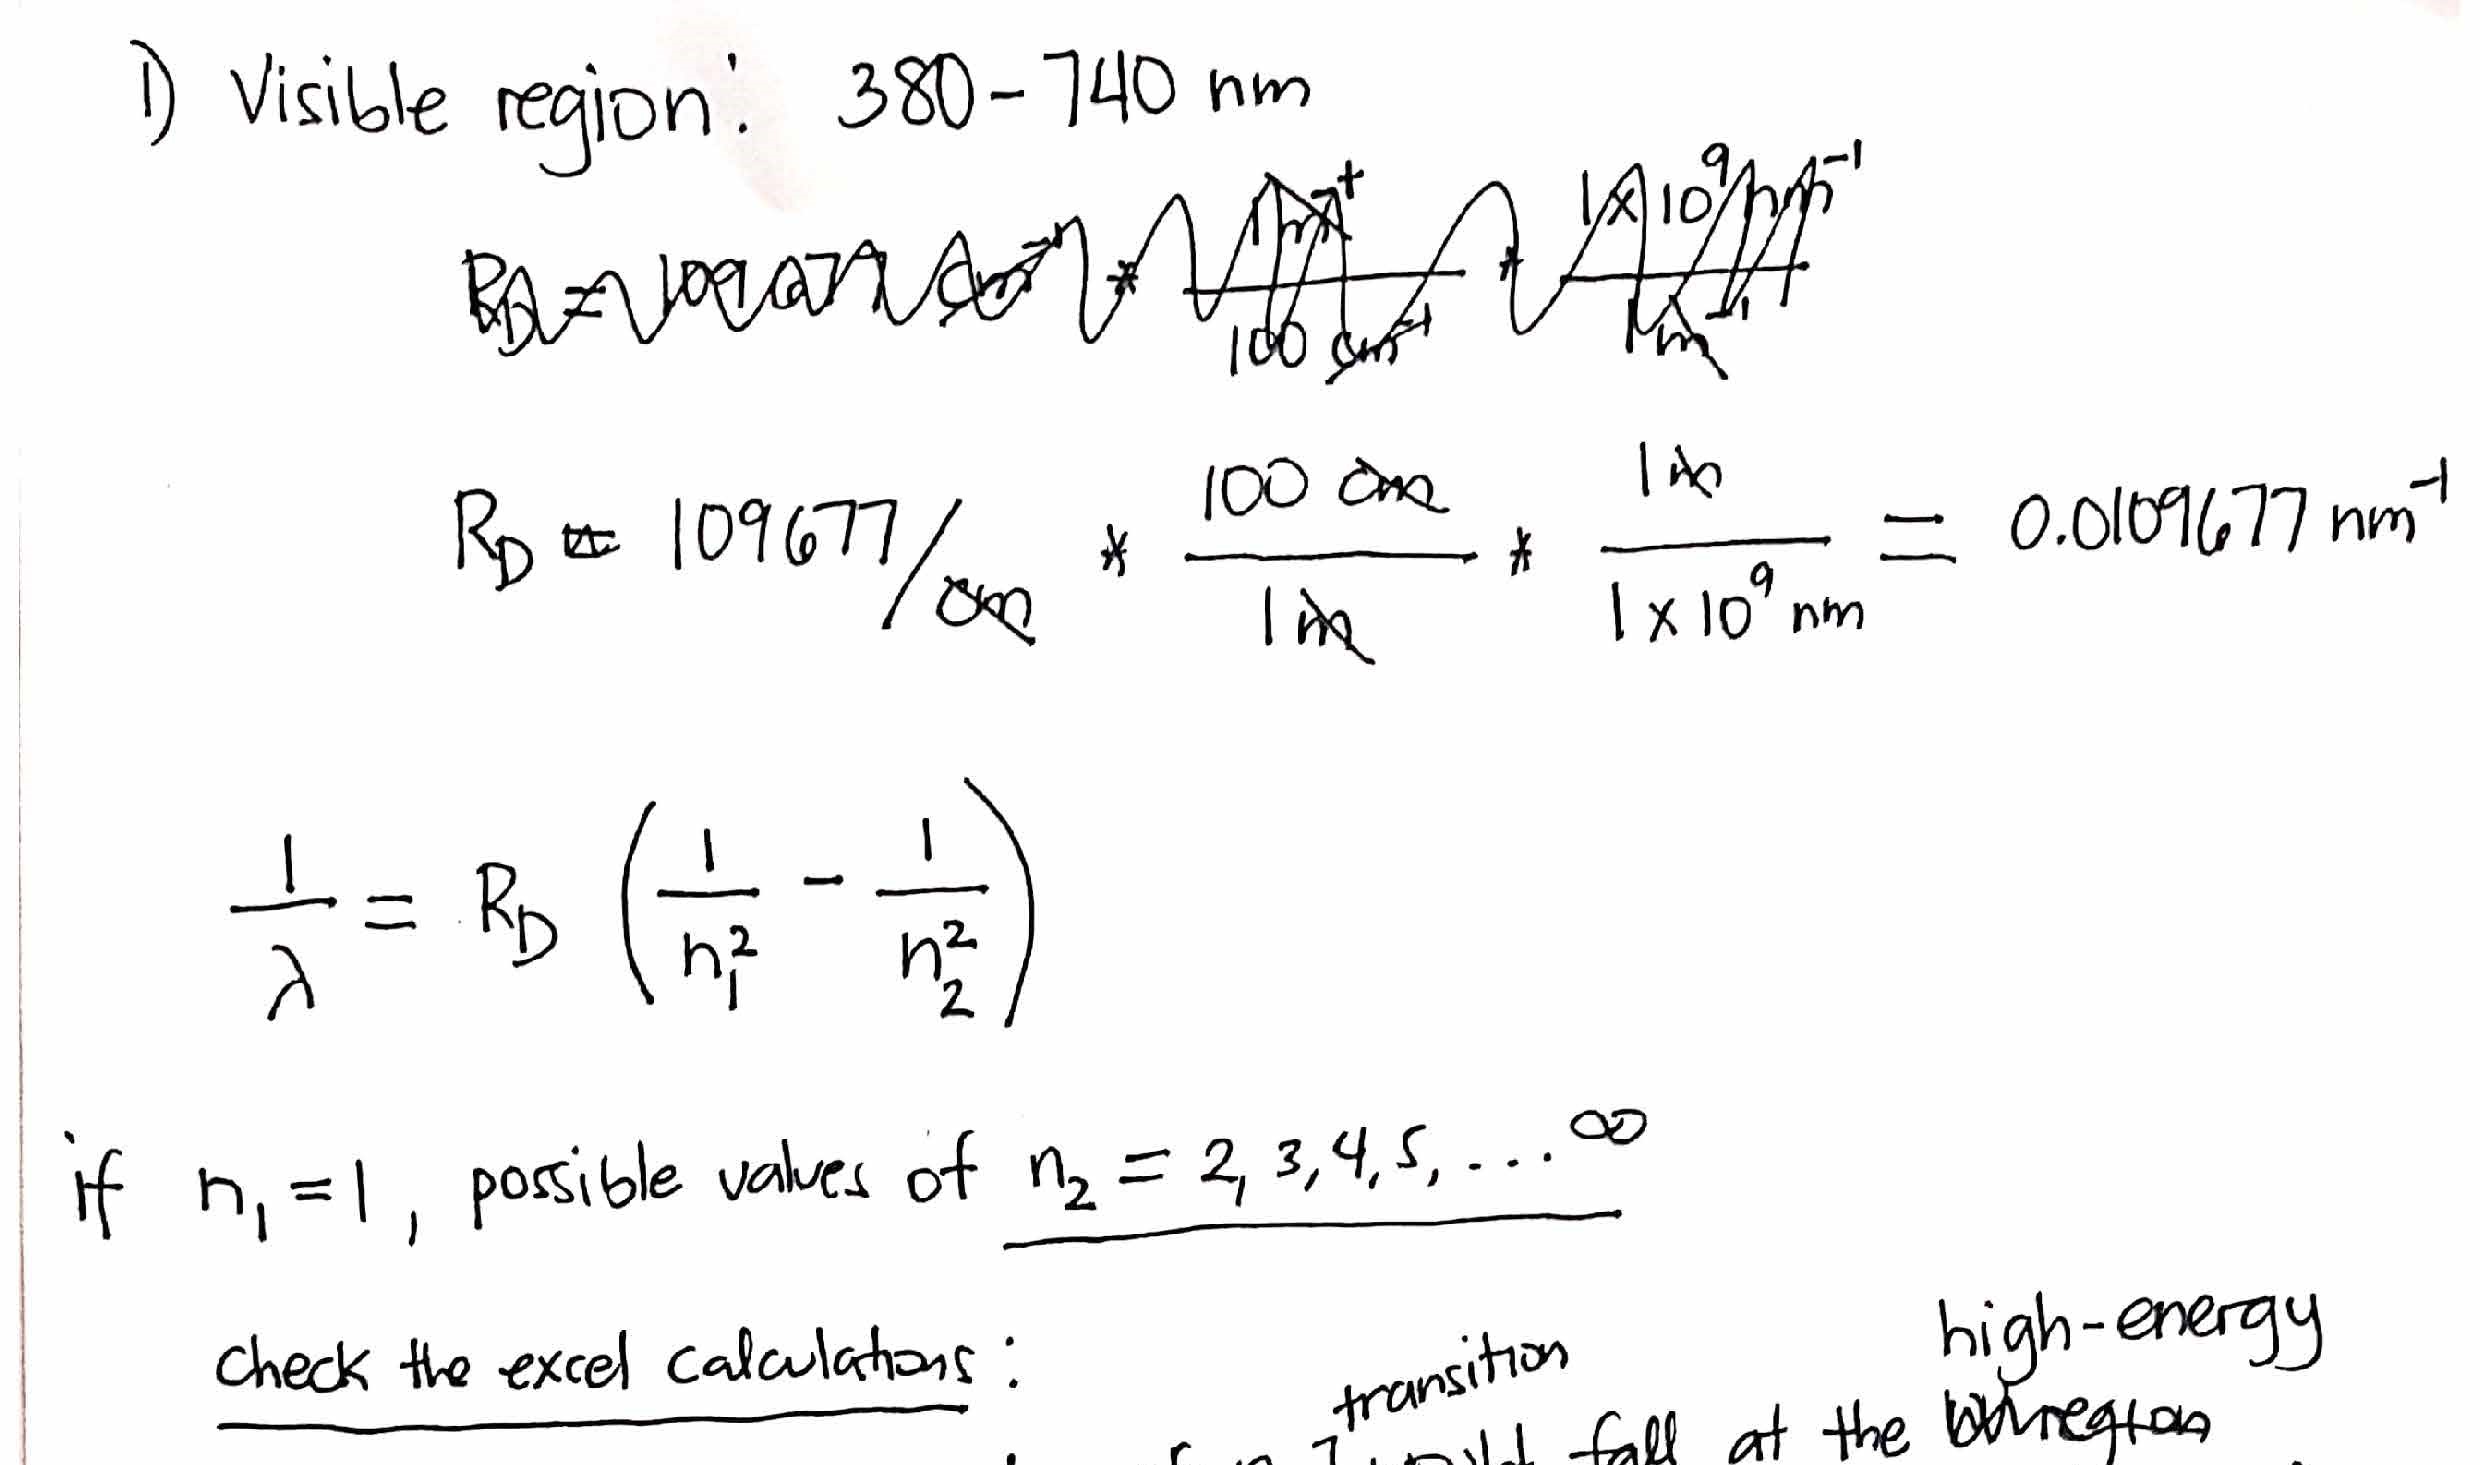 1) Visible region: 380-740 nm
R_D = 109677/cm * 100 cm / 1 m * 1 m / 1 x 10^9 nm = 0.0109677 nm^-1
1/λ = R_D (1/n_1^2 - 1/n_2^2)
if n_1 = 1, possible values of n_2 = 2, 3, 4, 5, ... ∞
check the excel calculations:
transition high-energy
fall at the region